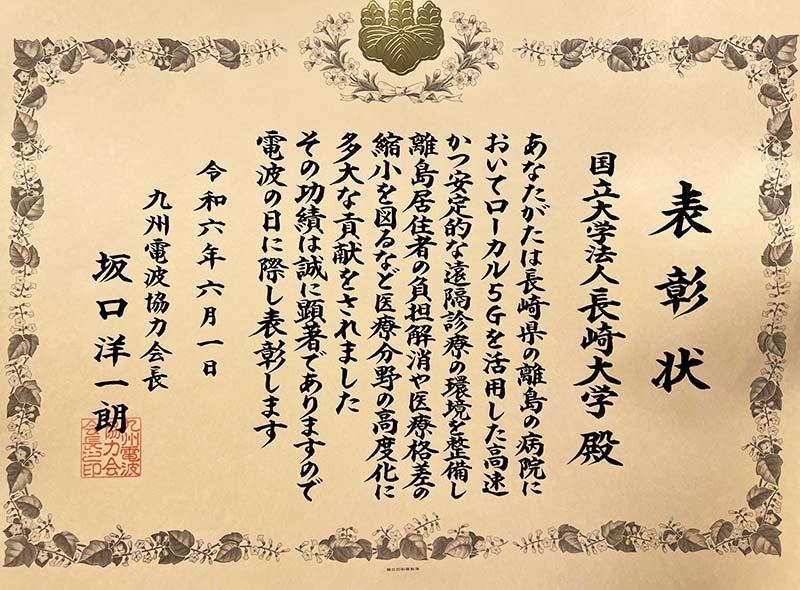 表彰状
国立大学法人長崎大学 殿
あなたがたは長崎県の離島の病院に
おいてローカル5Gを活用した高速
かつ安定的な遠隔診療の環境を整備し
離島居住者の負担解消や医療格差の
縮小を図るなど医療分野の高度化に
多大な貢献をされました
その功績は誠に顕著でありますので
電波の日に際し表彰します
令和六年六月一日
九州電波協力会長
坂口洋一朗
九州電波
協力会
会長之印